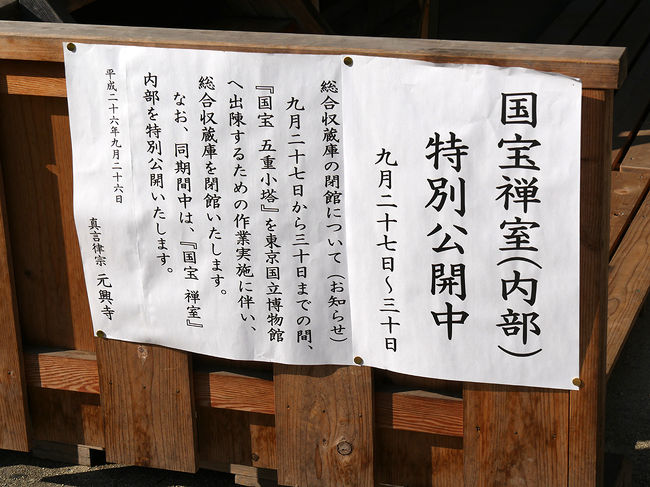 国宝禅室(内部)
特別公開中
九月二十七日～三十日
総合収蔵庫の閉館について(お知らせ)
九月二十七日から三十日までの間、
『国宝 五重小塔』を東京国立博物館
へ出陳するための作業実施に伴い、
総合収蔵庫を閉館いたします。
なお、同期間中は、『国宝 禅室』
内部を特別公開いたします。
平成二十六年九月二十六日
真言律宗 元興寺